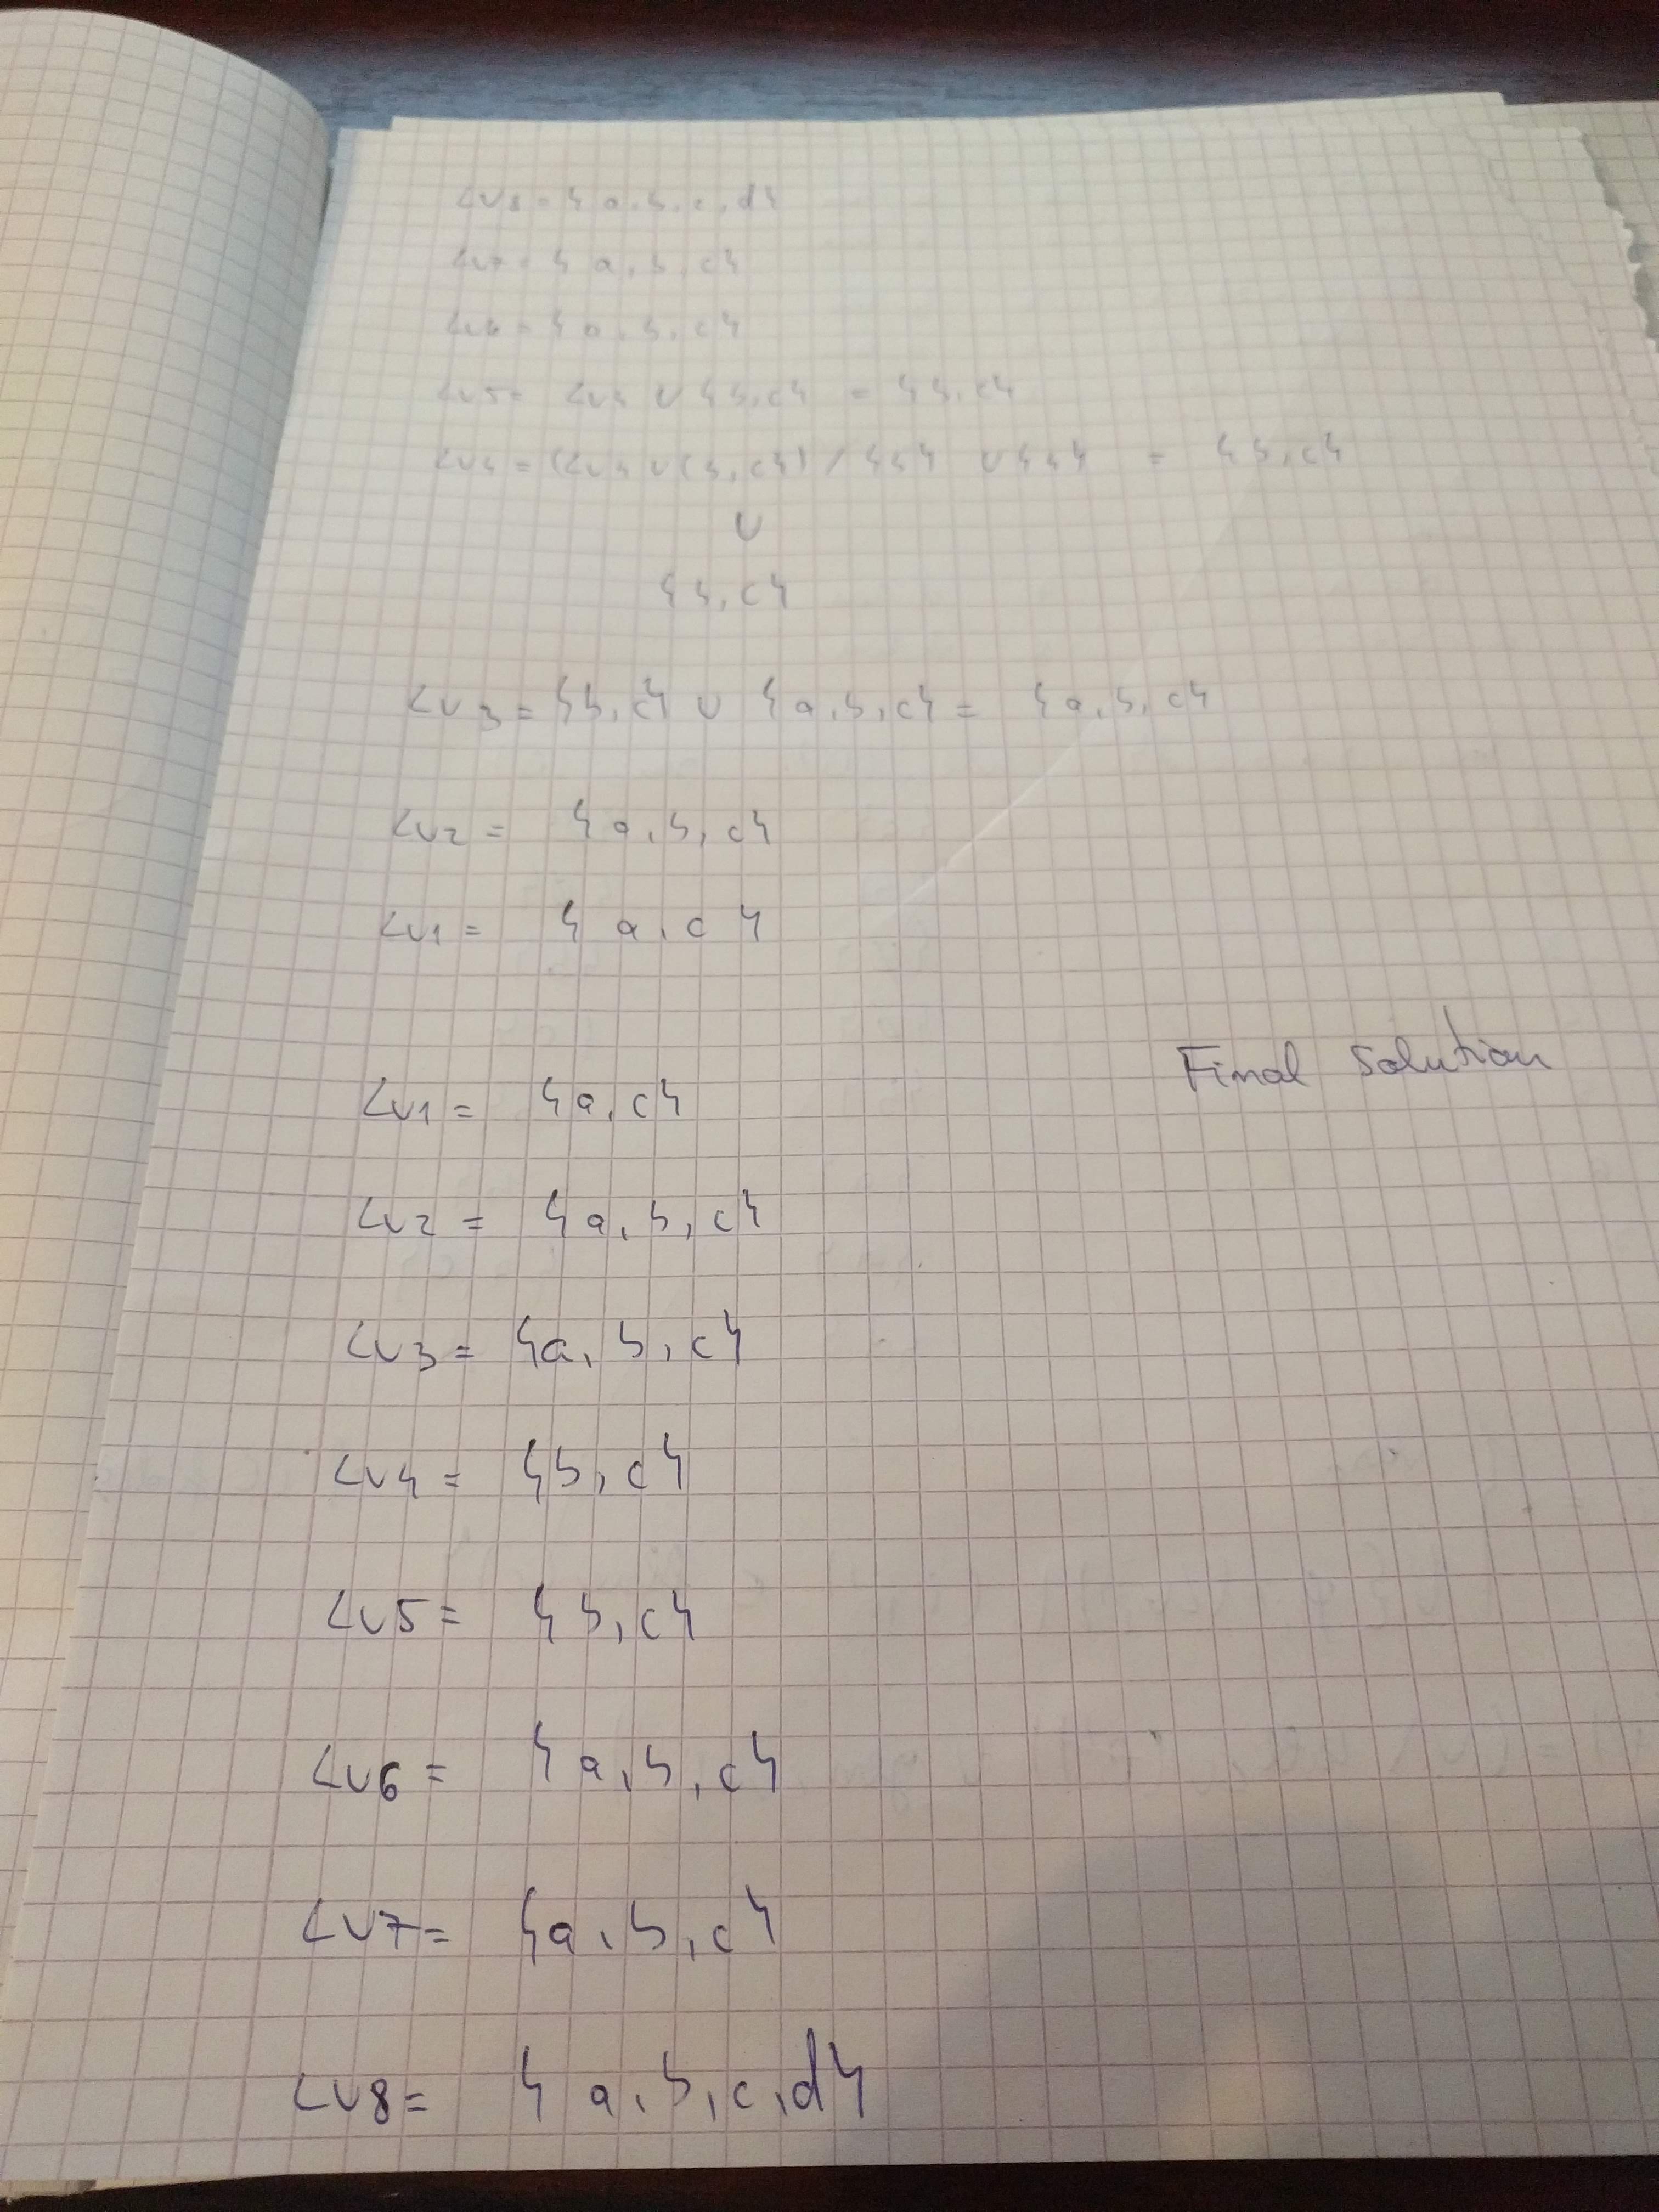 Lv8 = { a, b, c, d}
Lv7 = { a, b, c}
Lv6 = { a, b, c}
Lv5 = Lv4 ∪ {b, c} = {b, c}
Lv4 = (Lv4 ∪ (b, c}) / {b} ∪ {b} = {b, c}
∪
{b, c}
Lv3 = {b, c} ∪ {a, b, c} = {a, b, c}
Lv2 = {a, b, c}
Lv1 = { a, c }
Final solution
Lv1 = {a, c}
Lv2 = {a, b, c}
Lv3 = {a, b, c}
Lv4 = {b, c}
Lv5 = {b, c}
Lv6 = {a, b, c}
Lv7 = {a, b, c}
Lv8 = { a, b, c, d}